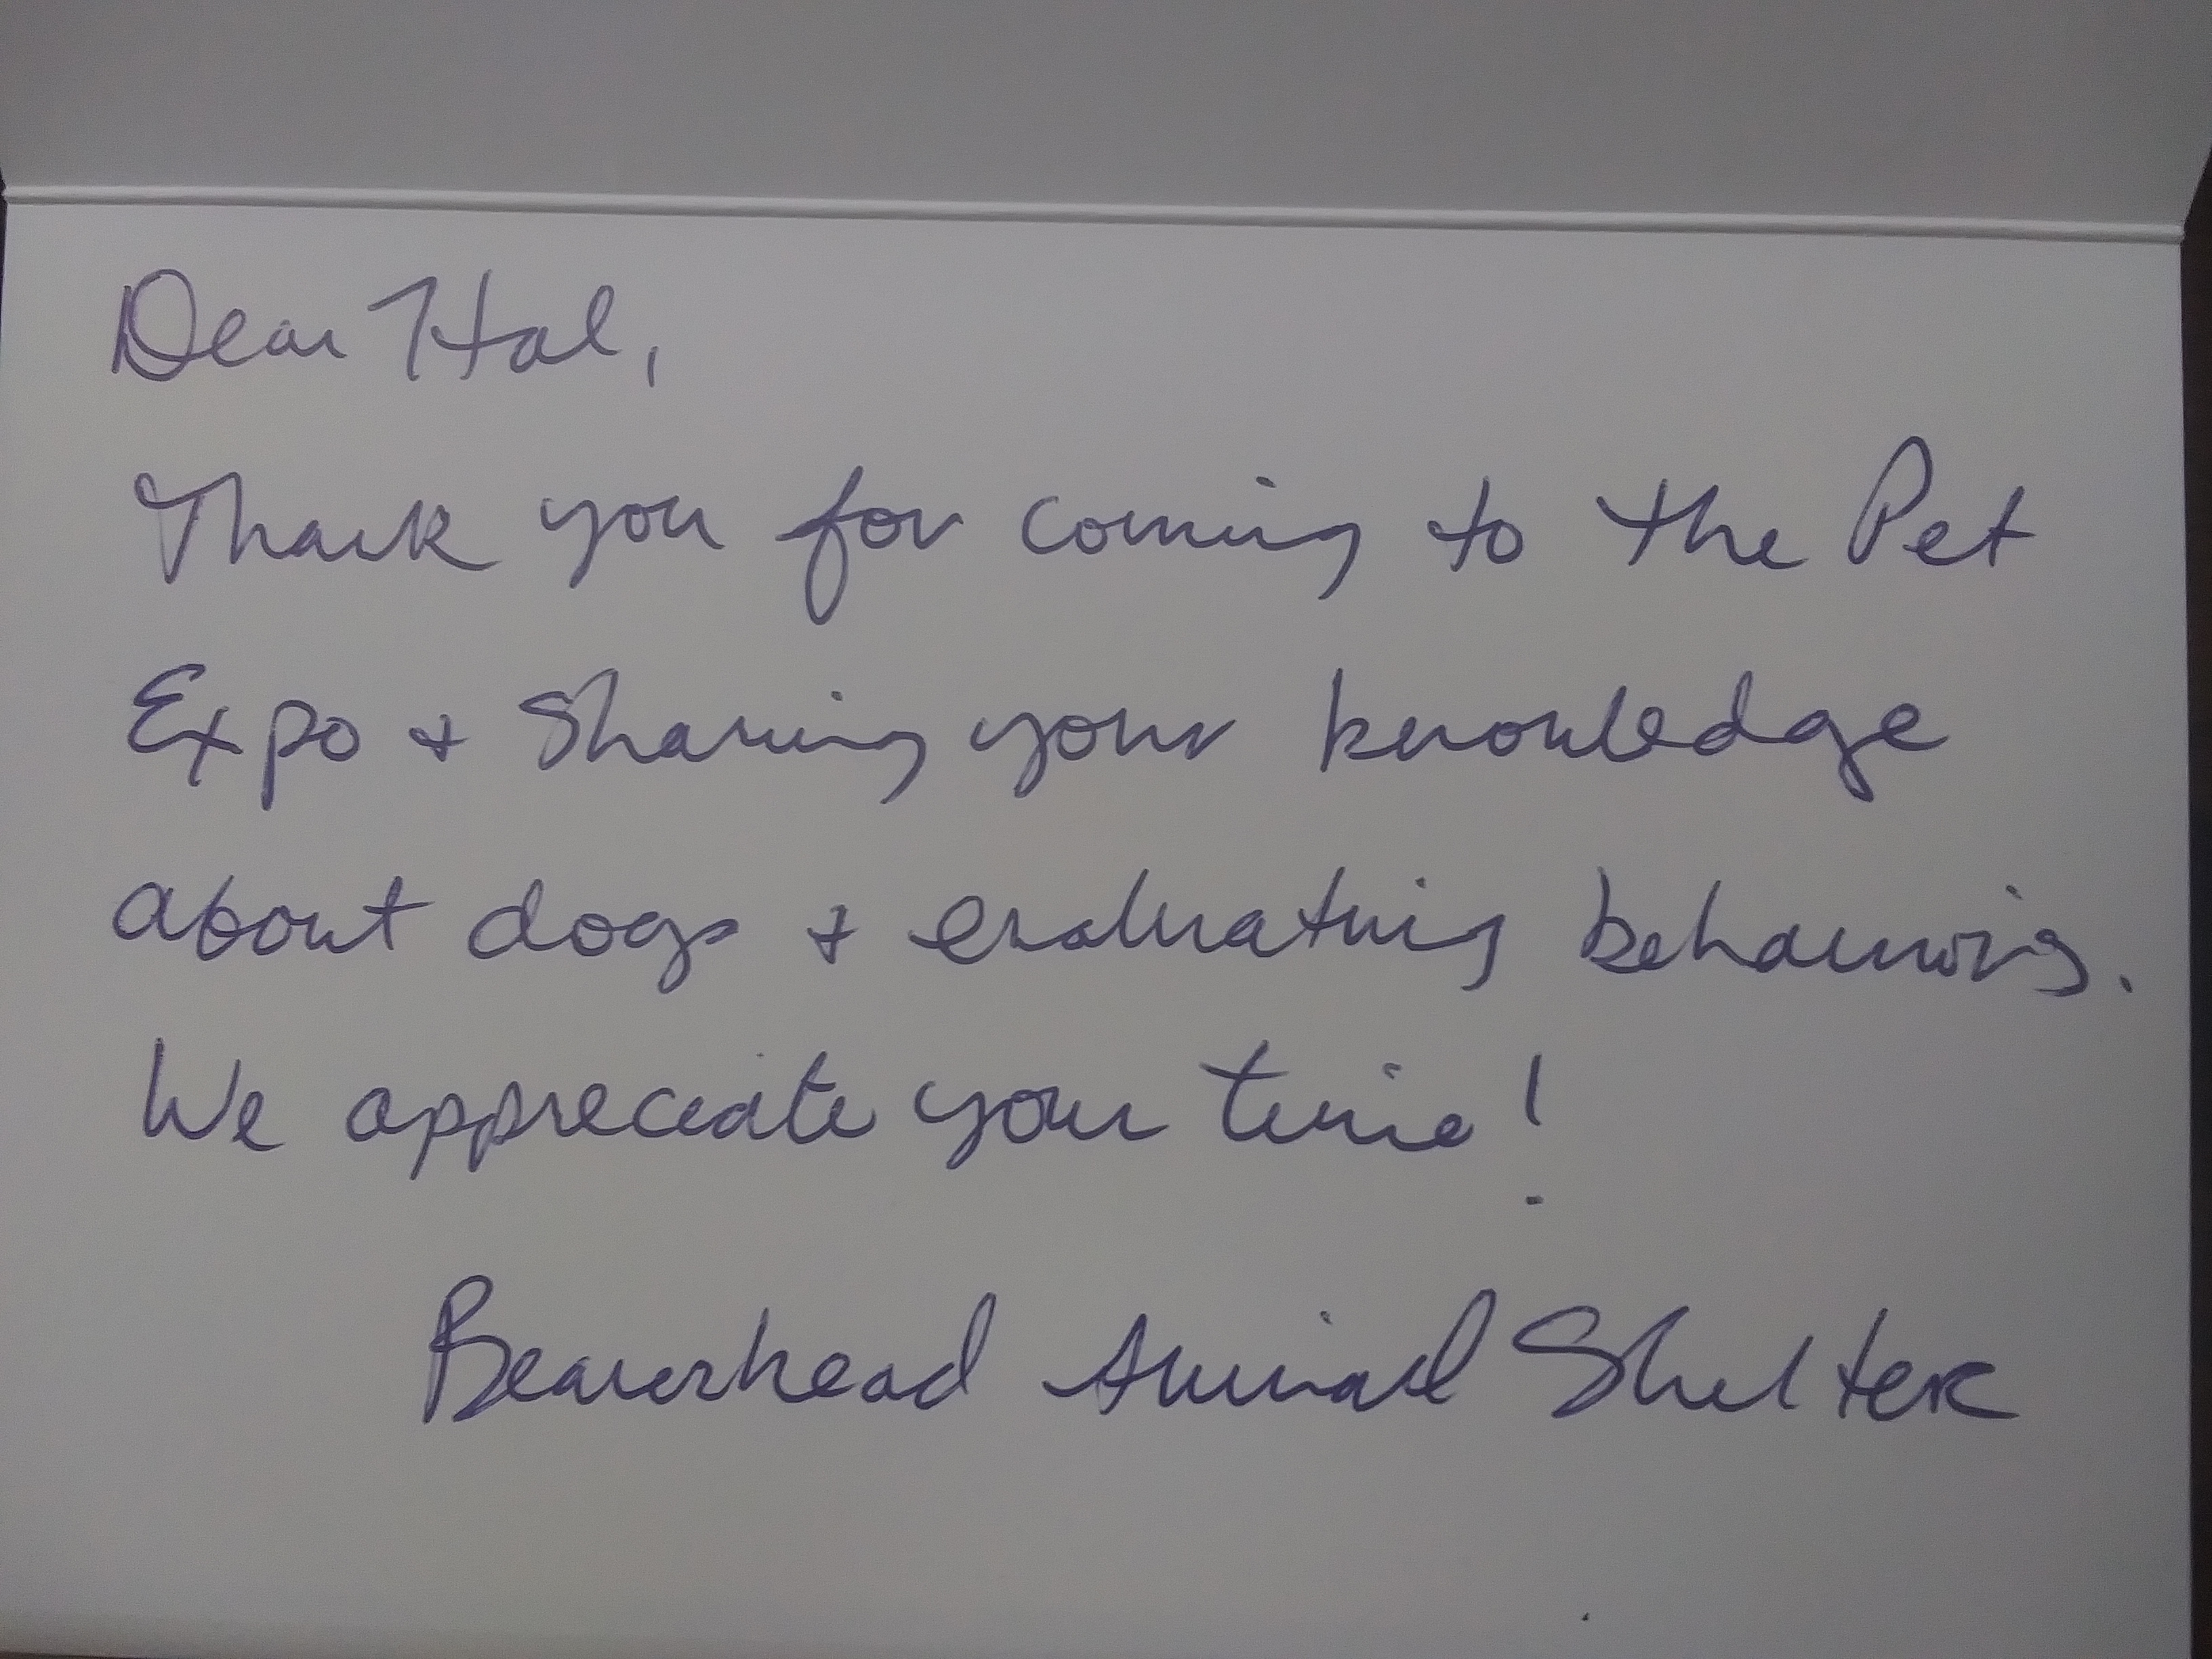 Dear Hal,
Thank you for coming to the Pet
Expo + Sharing your knowledge
about dogs + evaluating behaviors.
We appreciate your time!
Beaverhead Animal Shelter